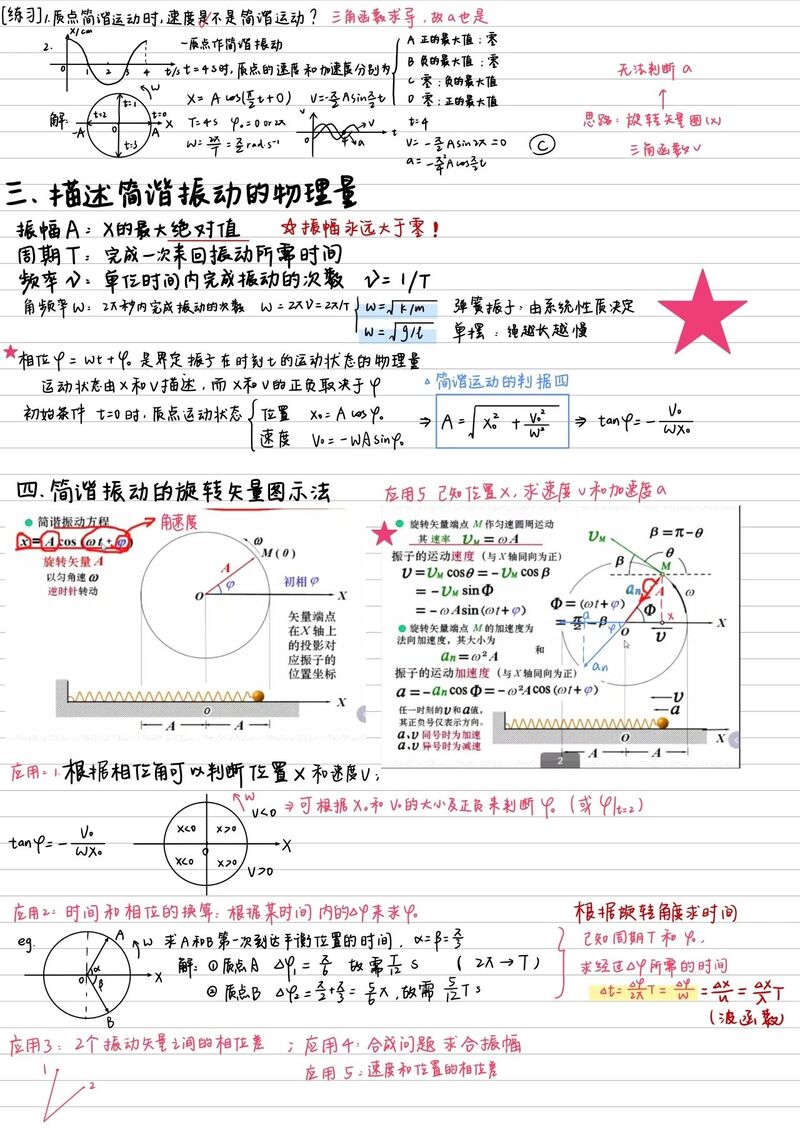 [练习] 1. 质点简谐运动时,速度是不是简谐运动? 三角函数求导,故a也是
2. X/cm 0 1 2 3 4 t/s
一质点作简谐振动
t=4s时,质点的速度和加速度分别为
A 正的最大值;零
B 负的最大值;零
C 零;负的最大值
D 零;正的最大值
无法判断 a
思路:旋转矢量图(x)
三角函数 v
解: t=2 t=1 t=0 t=3 -A 0 A X W
X = A cos(π/2 t+0) V=-π/2 A sin π/2 t
T=4s φ₀=0 or 2π
W=2π/T=π/2 rad·s⁻¹
v a t
t=4
V=-π/2 A sin2π=0
a=-π²/4 A cos π/2 t
C
三.描述简谐振动的物理量
振幅A:X的最大绝对值 ☆振幅永远大于零!
周期T:完成一次来回振动所需时间
频率ν:单位时间内完成振动的次数 ν=1/T
角频率W:2π秒内完成振动的次数 W=2πν=2π/T
W=√k/m 弹簧振子:由系统性质决定
W=√g/l 单摆:绳越长越慢
★相位φ=Wt+φ₀是界定振子在时刻t的运动状态的物理量
运动状态由X和V描述,而X和V的正负取决于φ
△简谐运动的判据四
初始条件 t=0时,质点运动状态
位置 X₀=A cosφ₀
速度 V₀=-WA sinφ₀
⇒ A=√X₀²+V₀²/W² ⇒ tanφ=-V₀/WX₀
四.简谐振动的旋转矢量图示法
简谐振动方程
角速度
x=A cos (ωt+φ)
旋转矢量 A
以匀角速 ω
逆时针转动
ω
M(0)
A
φ 初相 φ
O X
矢量端点
在X 轴上
的投影对
应振子的
位置坐标
O X
A A
应用5 已知位置X,求速度v和加速度a
旋转矢量端点 M 作匀速圆周运动
其速率 υM=ωA
振子的运动速度(与X轴同向为正)
υ=υM cosθ=-υM cosβ
=-υM sinΦ
=-ωA sin(ωt+φ)
旋转矢量端点 M 的加速度为
法向加速度,其大小为
an=ω²A
和
振子的运动加速度(与X轴同向为正)
a=-an cosΦ=-ω²A cos(ωt+φ)
任一时刻的υ和a值,
其正负号仅表示方向。
a、υ 同号时为加速
a、υ 异号时为减速
β=π-θ
υM β θ M
an A ω
Φ=(ωt+φ)
=π/2-β
a φ O Φ x X
υ
an
υ
a
O X
A A
2
应用:1.根据相位角可以判断位置X和速度V;
tanφ=-V₀/WX₀
X<0 X>0 X<0 X>0 0 X
W V<0 V>0
⇒可根据X₀和V₀的大小及正负来判断φ₀(或φ|t=2)
应用2:时间和相位的换算:根据某时间内的△φ来求φ₀
根据旋转角度求时间
eg. A W 0 α β X B
求A和B第一次到达平衡位置的时间,α=β=π/3
解:①质点A △φ₁=π/6 故需T/12 s (2π→T)
②质点B △φ₂=π/2+π/3=5/6π,故需5/12 T s
已知周期T和φ₀,
求经过△φ所需的时间
△t=△φ/2π T=△φ/W=△x/u=△x/λ T
(波函数)
应用3:2个振动矢量之间的相位差 ;应用4:合成问题求合振幅
1 2
应用5:速度和位置的相位差